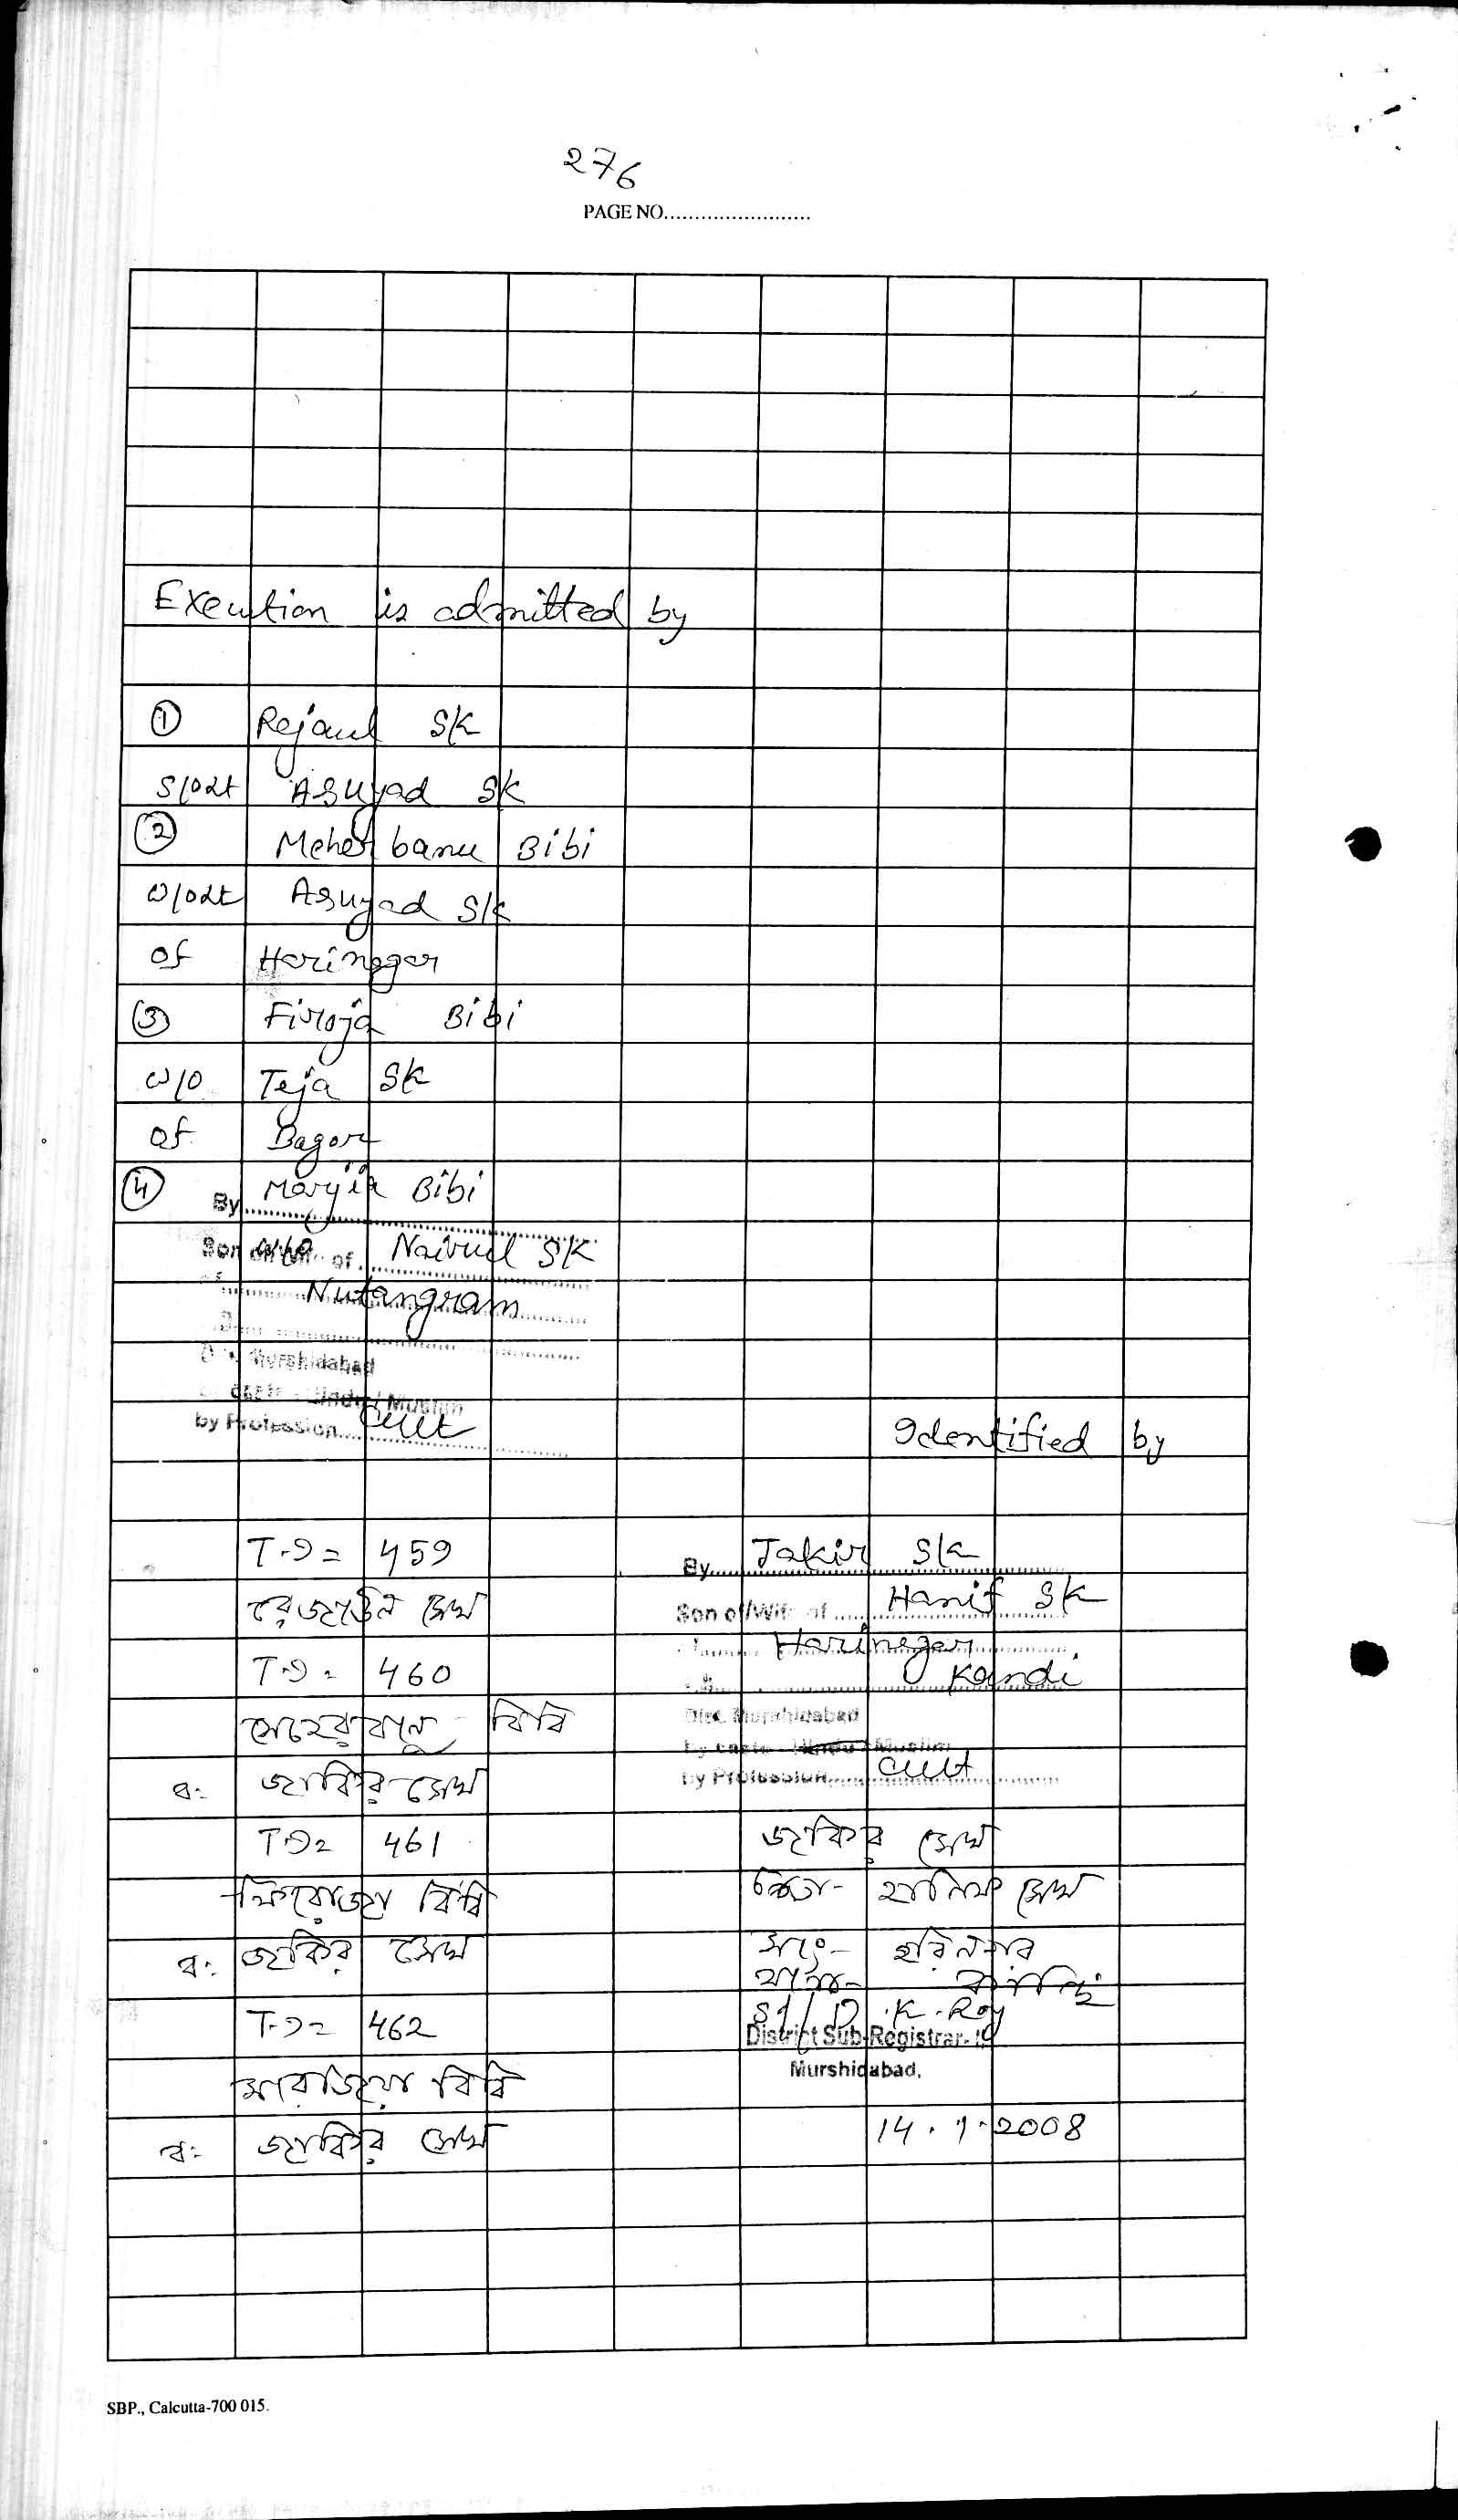 276
PAGE NO........................
Execution is admitted by
① Rejaul SK
S/o Lt Asuyad SK
② Meher banu Bibi
W/o Lt Asuyad SK
of Harinagar
③ Firoja Bibi
W/o Teja SK
of Bagor
④ By Marjia Bibi
Son of/Wife of W/o Nairul SK
Nutangram
Dist. Murshidabad
by caste Hindu / Muslim
by Profession cult
Identified by
T.I = 459
রেজাউল সেখ
T.I = 460
মেহেরবানু বিবি
ব: জাকির সেখ
T.I = 461
ফিরোজা বিবি
ব: জাকির সেখ
T.I = 462
মারজিয়া বিবি
ব: জাকির সেখ
By Jakir SK
Son of/Wife of Hanif SK
Harinagar
Kandi
Dist. Murshidabad
by caste Hindu / Muslim
by Profession cult
জাকির সেখ
পিতা- হানিফ সেখ
সাং- হরিনগর
থানা- কান্দি
Sd/ D.K. Roy
District Sub-Registrar-
Murshidabad.
14.1.2008
SBP., Calcutta-700 015.